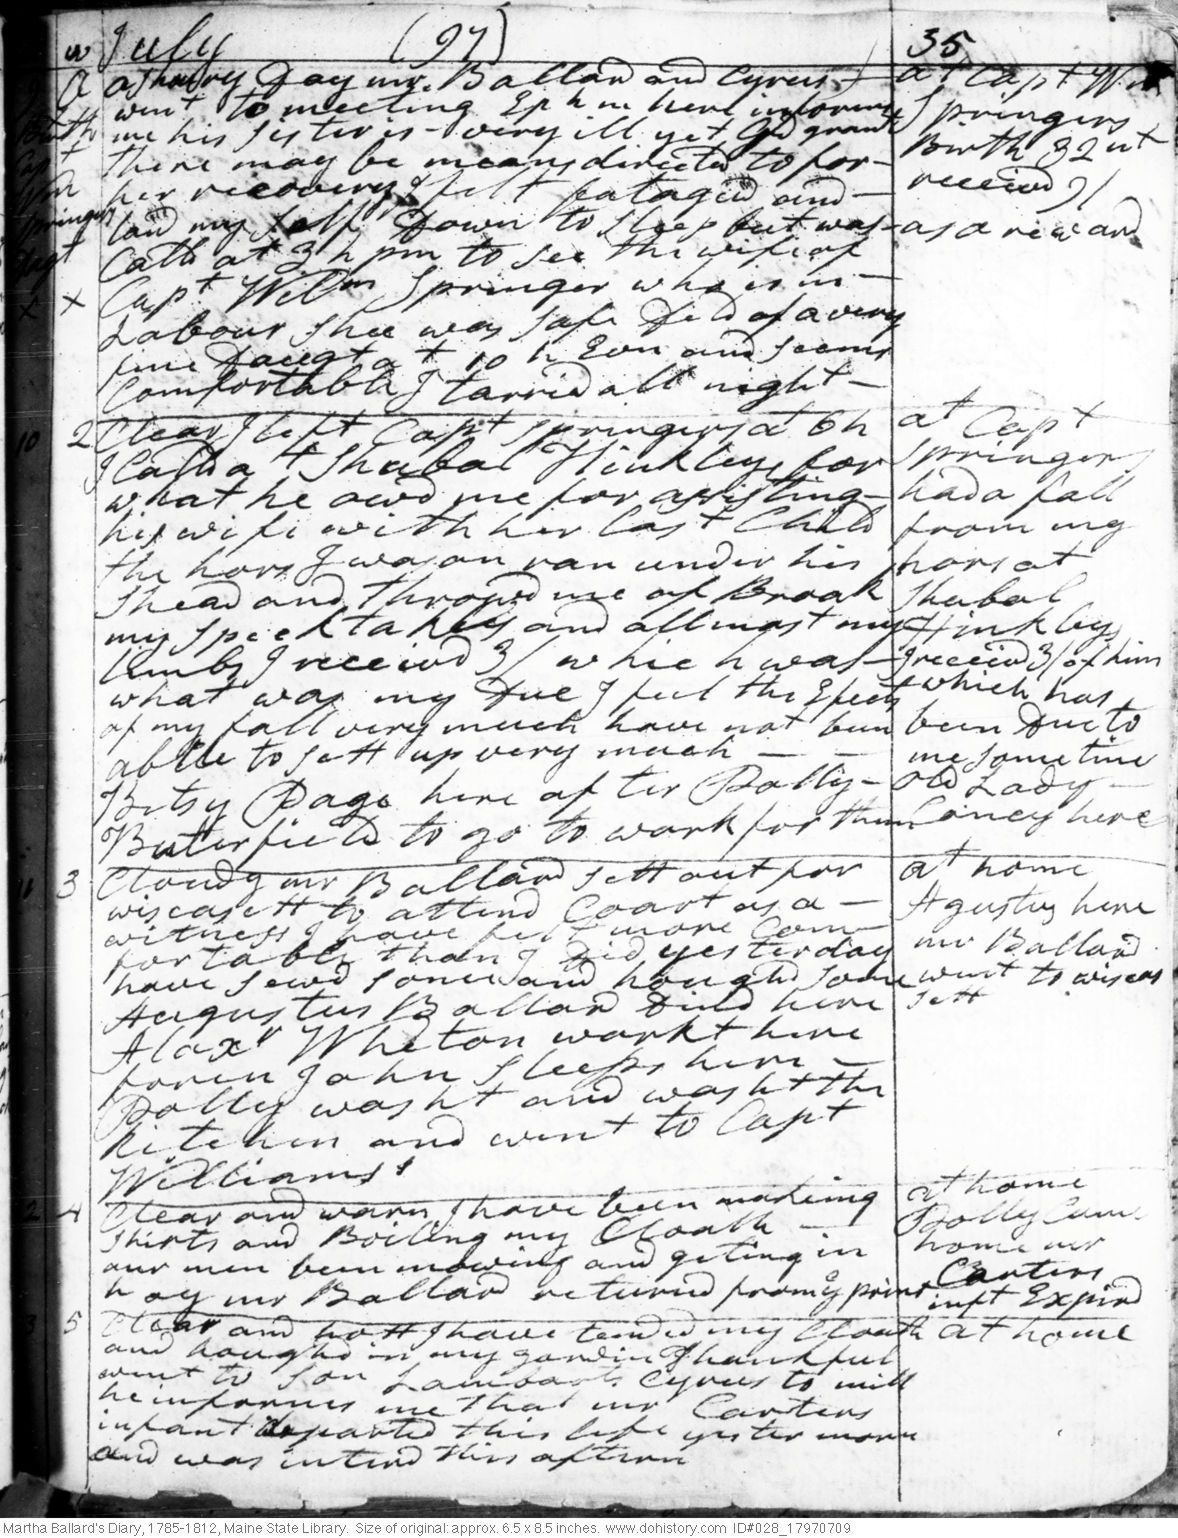 w July (97) 35
a showry Day mr. Ballard and Cyrus
went to meeting Ephm here informs
me his Sister is very ill yet God grant
there may be means directed to for
her recovery I felt fatagud and
laid my self Down to sleep but was
Calld at 3 h pm to see the wife of
Capt Willm Springer who is in
Labour Shee was safe Deld of a very
fine Daugt at 10 h Evn and seems
Comfortable I tarried all night
at Capt Wm
Springers
Birth 32 nt
receivd 9/
as a reward
Birth
Capt
Springers
Dagt
x x
10 2 Clear I left Capt Springers at 6 h
I Calld at Shubal Hinkleys for
what he owd me for assisting
his wife with her last Child
the hors I was on ran under his
Shead and thropd me of Broak
my specktakles and allmost my
limbs I receivd 3/ which was
what was my Due I feel the Efects
of my fall very much have not been
able to sett up very much
Betsy Page here after Dolly
Buterfield to go to work for them
at Capt
Springers
had a fall
from my
hors at
Shubal
Hinkleys
I receivd 3/ of him
which has
been Due to
me some time
old Lady
Coney here
11 3 Cloudy mr Ballard sett out for
wiscasett to attend Coart as a
witness I have felt more Com
fortable than I Did yesterday
have sewd some and houghd some
Augustus Ballard Dind here
Alaxr Wheton workt here
foren John sleeps here
Dolly washt and washt the
kitchen and went to Capt
Williams's
at home
Agustus here
mr Ballard
went to wiscas
sett
2 4 Clear and warm I have been makeing
shirts and Boiling my Cloath
our men been mowing and geting in
hay mr Ballard returnd from y point
at home
Dolly Came
home mr
Carters
inft Expird
3 5 Clear and hott I have tended my Cloath
and houghd in my gardin Thankful
went to son Lambards Cyrus to mill
he informs me that mr Carters
infant departed this life yester morn
and was interd this aftern
at home
Martha Ballard's Diary, 1785-1812, Maine State Library. Size of original: approx. 6.5 x 8.5 inches. www.dohistory.com ID#028_17970709